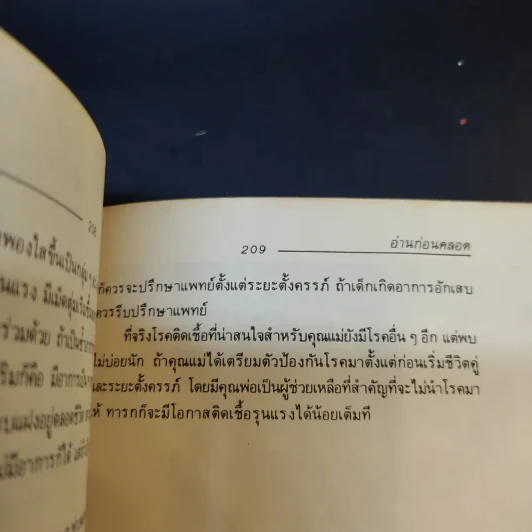 208
พองใสขึ้นเป็นกลุ่ม ๆ
นแรง มีเม็ดตุ่มเริ่มขึ้น
ร่วมด้วย ถ้าเป็นซ้ำ
ริมก็คือ มีอาการเป็น
บแฝงอยู่ตลอดชีวิต
ม่มีอาการก็ได้
209 อ่านก่อนคลอด
ก็ควรจะปรึกษาแพทย์ตั้งแต่ระยะตั้งครรภ์ ถ้าเด็กเกิดอาการอักเสบ
ควรรีบปรึกษาแพทย์
ที่จริงโรคติดเชื้อที่น่าสนใจสำหรับคุณแม่ยังมีโรคอื่น ๆ อีก แต่พบ
ไม่บ่อยนัก ถ้าคุณแม่ได้เตรียมตัวป้องกันโรคมาตั้งแต่ก่อนเริ่มชีวิตคู่
และระยะตั้งครรภ์ โดยมีคุณพ่อเป็นผู้ช่วยเหลือที่สำคัญที่จะไม่นำโรคมา
ให้ ทารกก็จะมีโอกาสติดเชื้อรุนแรงได้น้อยเต็มที